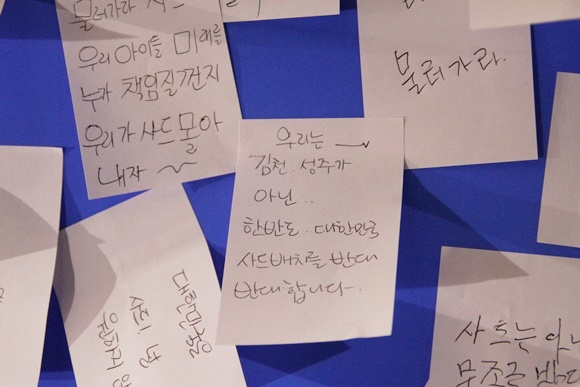 물러가라 사드
우리 아이들 미래를
누가 책임질껀지
우리가 사드 몰아
내자 ~
물러가라.
우리는
김천. 성주가
아닌..
한반도.. 대한민국
사드배치를 반대
반대합니다.
대한민국은
사드
원하지
사드는 아니
무조건 반대